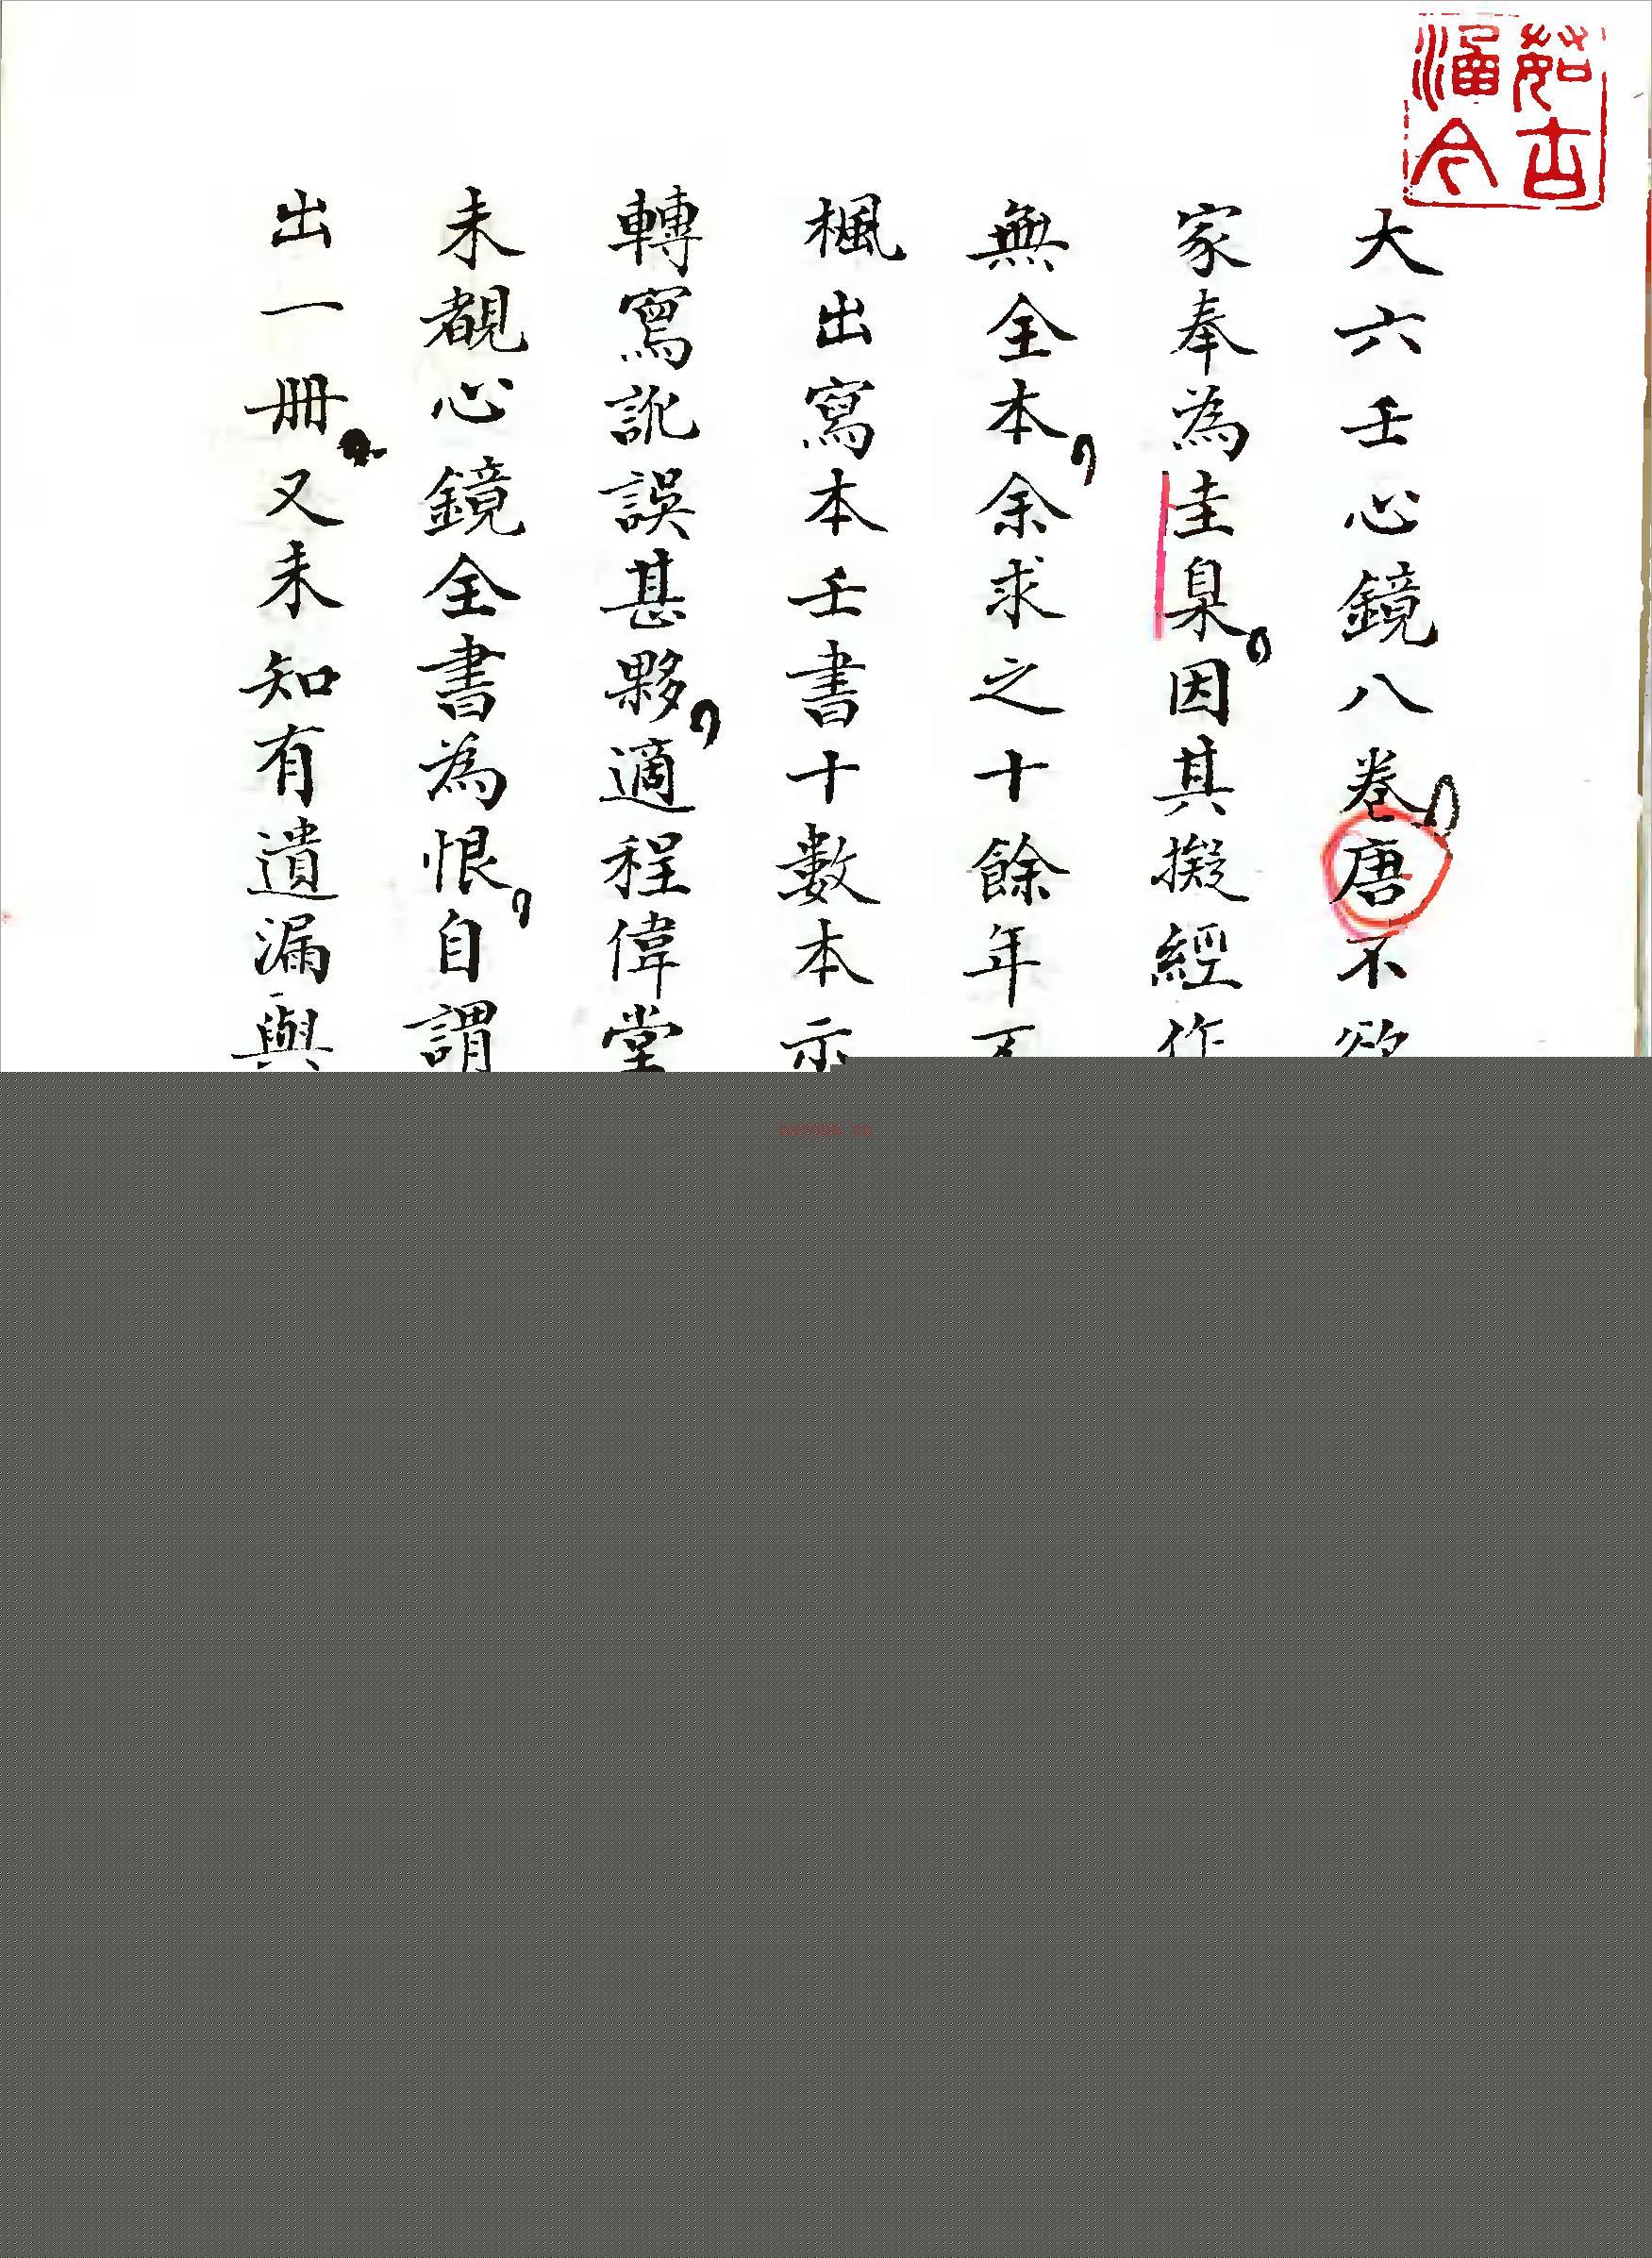 大六壬心鏡八卷唐不欲
家奉為圭臬因其擬經作
無全本余求之十餘年
楓出寫本壬書十數本示
轉寫訛誤甚夥適程偉堂
未覩心鏡全書為恨自謂
出一冊又未知有遺漏與
茹古
涵今